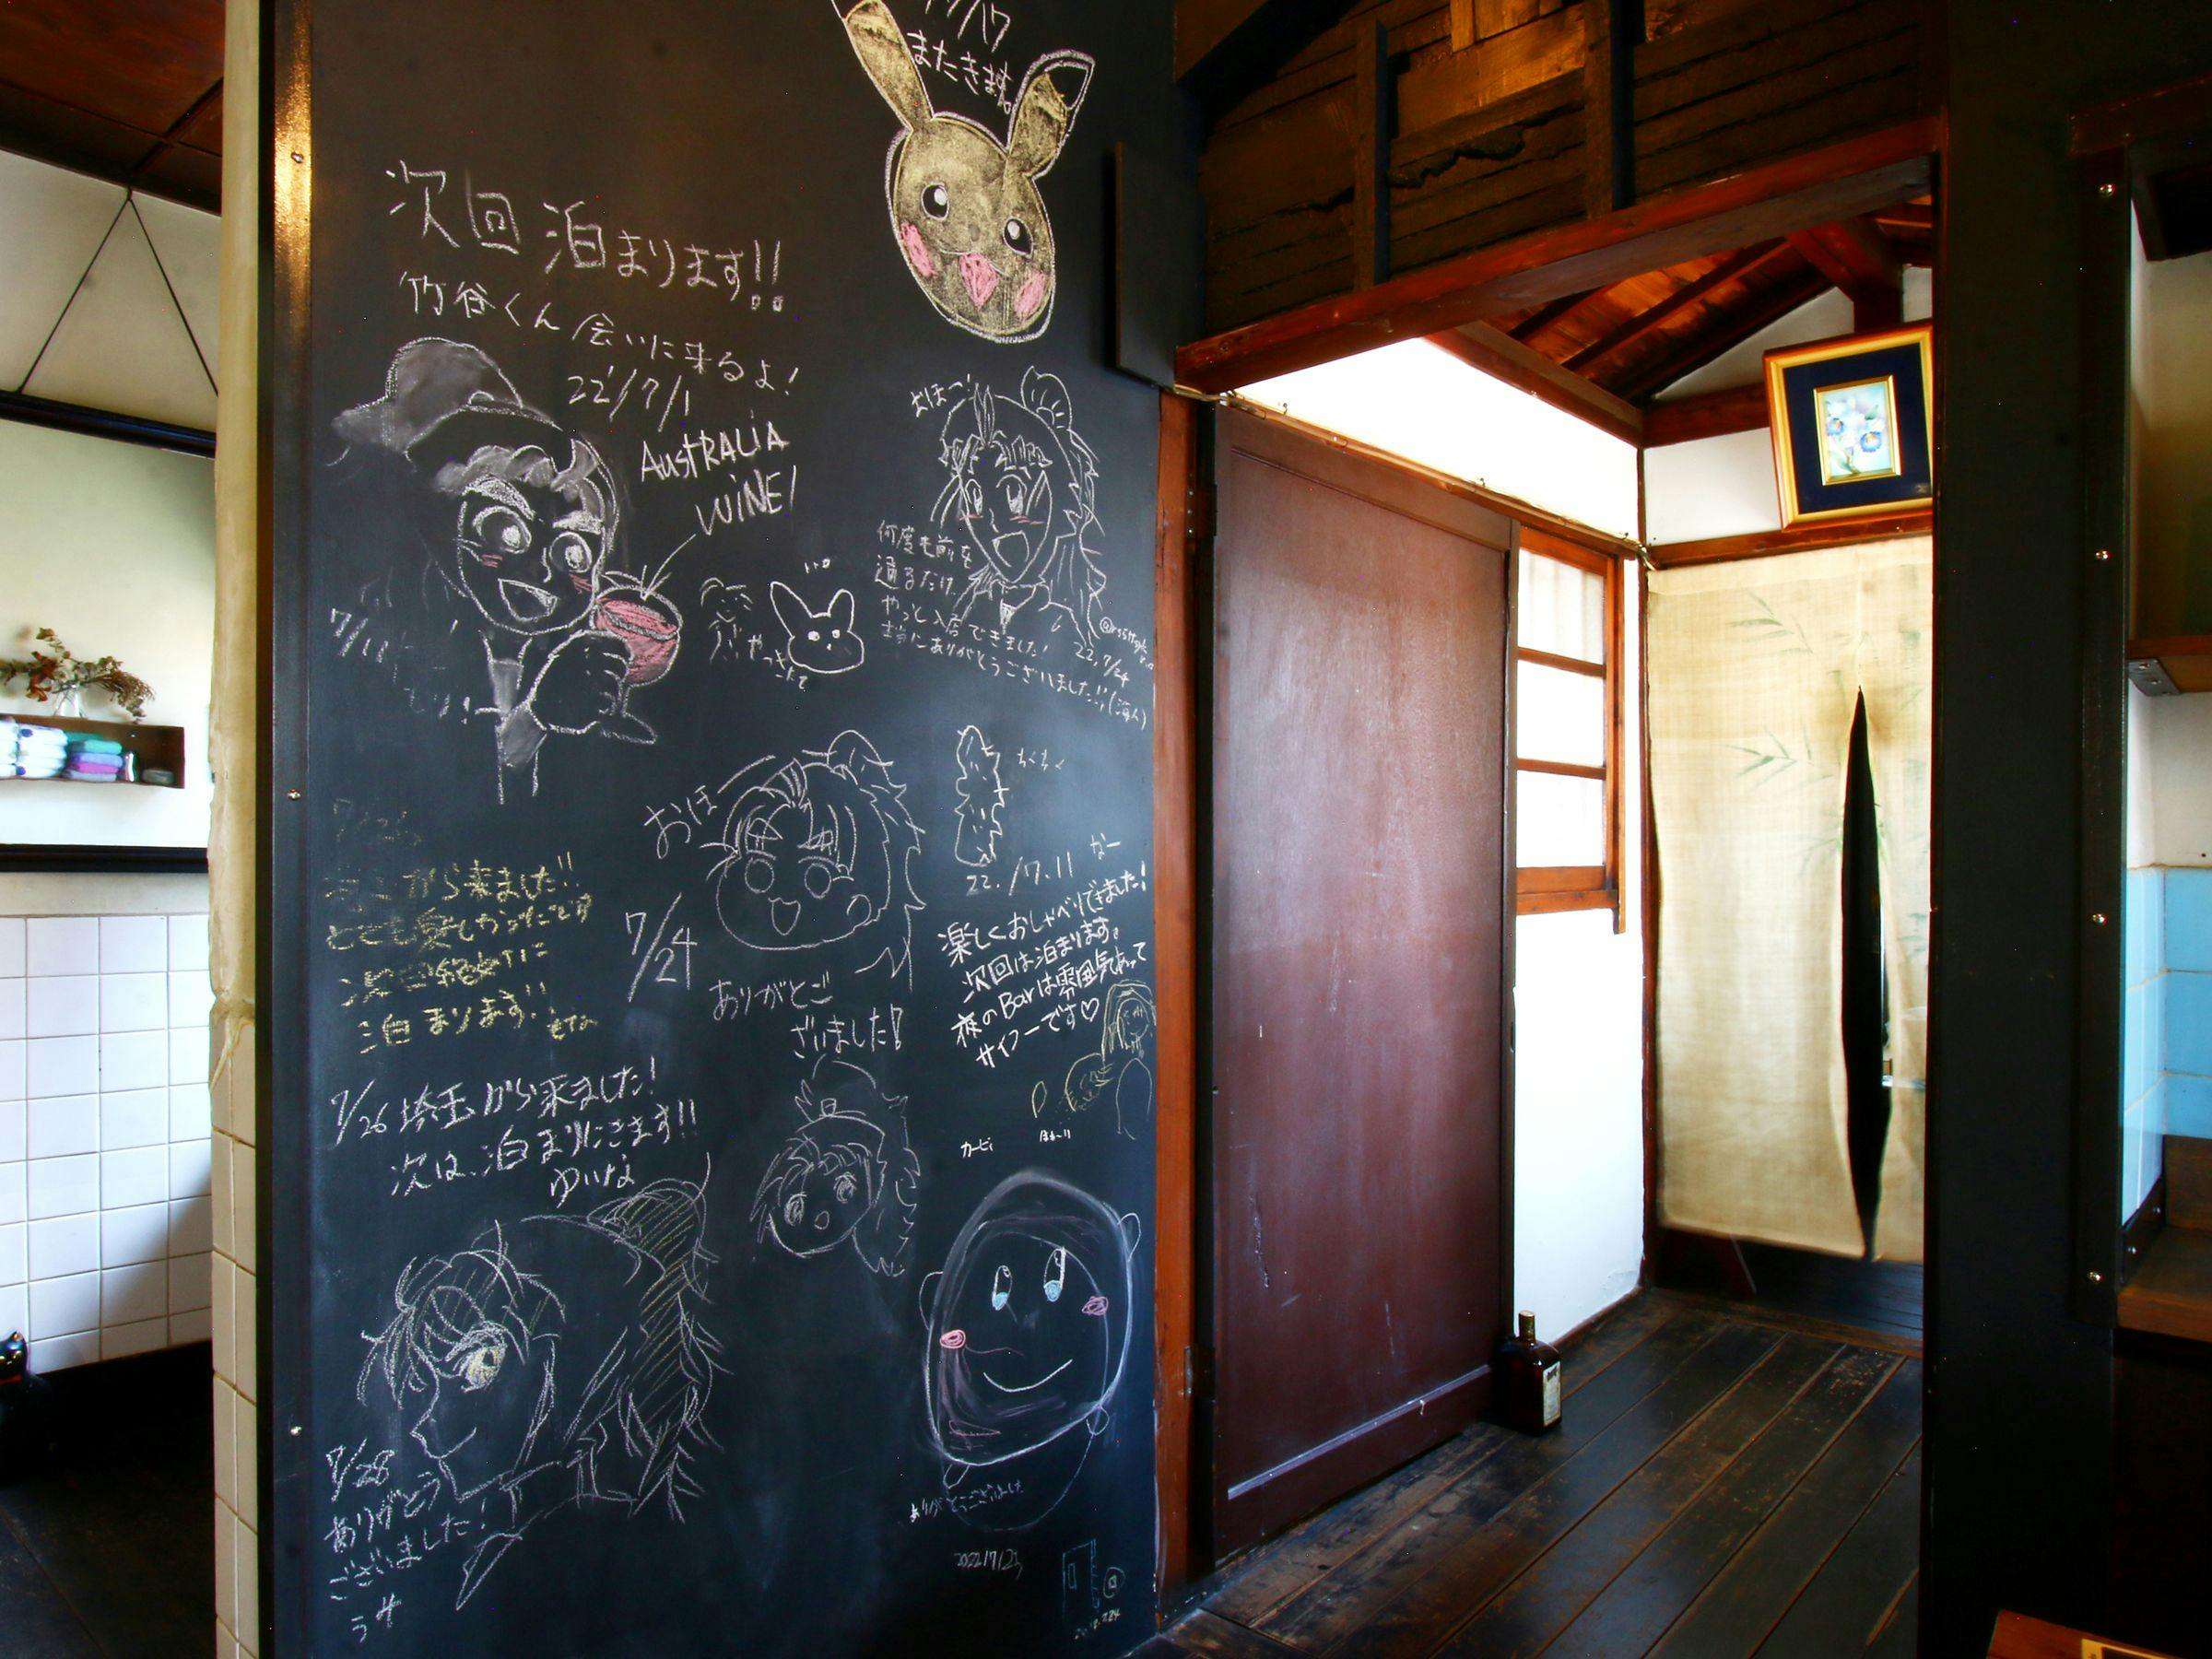 またきます。
次回泊まります!!
竹谷くん会いに来るよ!
22'/7/1
AUSTRALiA
WiNE!
おほー!
何度も前を
通るだけ
やっと入店できました!
ありがとうございました!!
22,7/24
7/11
ちくちく
22./7.11
楽しくおしゃべりできました!
次回は泊まります。
夜のBarは雰囲気あって
サイコーです♡
おほー
7/24
ありがとご
ざいました!
から来ました!!
とても楽しかったです
泊まります!!
7/26 埼玉から来ました!
次は、泊まりにきます!!
ゆいな
カービィ
7/28
ありがとう
ございました!
うサ
ありがとうございました